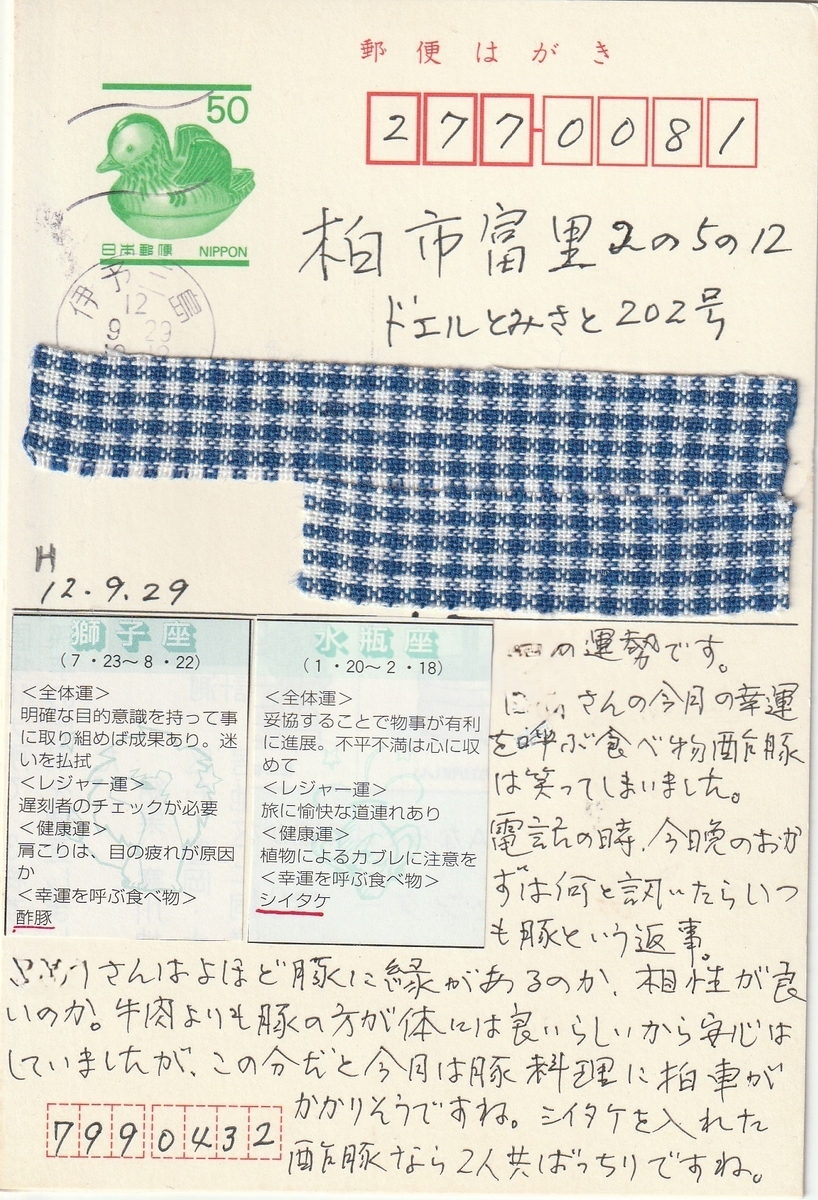 郵便はがき
50
日本郵便 NIPPON
277-0081
柏市富里2の5の12
ドエルとみさと202号
伊予三島
12
9 29
H
12.9.29
獅子座
(7・23〜8・22)
<全体運>
明確な目的意識を持って事
に取り組めば成果あり。迷
いを払拭
<レジャー運>
遅刻者のチェックが必要
<健康運>
肩こりは、目の疲れが原因
か
<幸運を呼ぶ食べ物>
酢豚
水瓶座
(1・20〜2・18)
<全体運>
妥協することで物事が有利
に進展。不平不満は心に収
めて
<レジャー運>
旅に愉快な道連れあり
<健康運>
植物によるカブレに注意を
<幸運を呼ぶ食べ物>
シイタケ
の運勢です。
さんの今月の幸運
を呼ぶ食べ物酢豚
は笑ってしまいました。
電話の時、今晩のおか
ずは何と訊いたらいつ
も豚という返事。
さんはよほど豚に縁があるのか、相性が良
いのか。牛肉よりも豚の方が体には良いらしいから安心は
していましたが、この分だと今月は豚料理に拍車が
かかりそうですね。シイタケを入れた
酢豚なら2人共ばっちりですね。
7990432